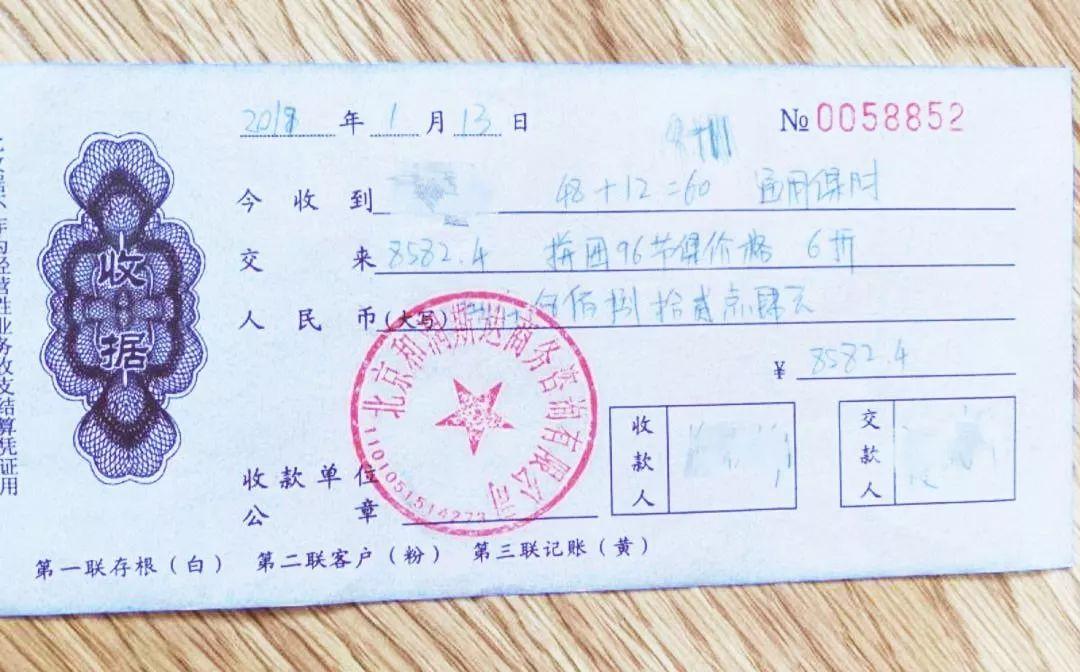 2018年1月13日 № 0058852
今收到 48+12=60 通用课时
交来 8582.4 拼团96节课价格 6折
人民币(大写) 捌仟伍佰捌拾贰点肆元
¥ 8582.4
收据
北京和润斯达商务咨询有限公司
1101051514273
收款单位公章
收款人
交款人
第一联存根(白) 第二联客户(粉) 第三联记账(黄)